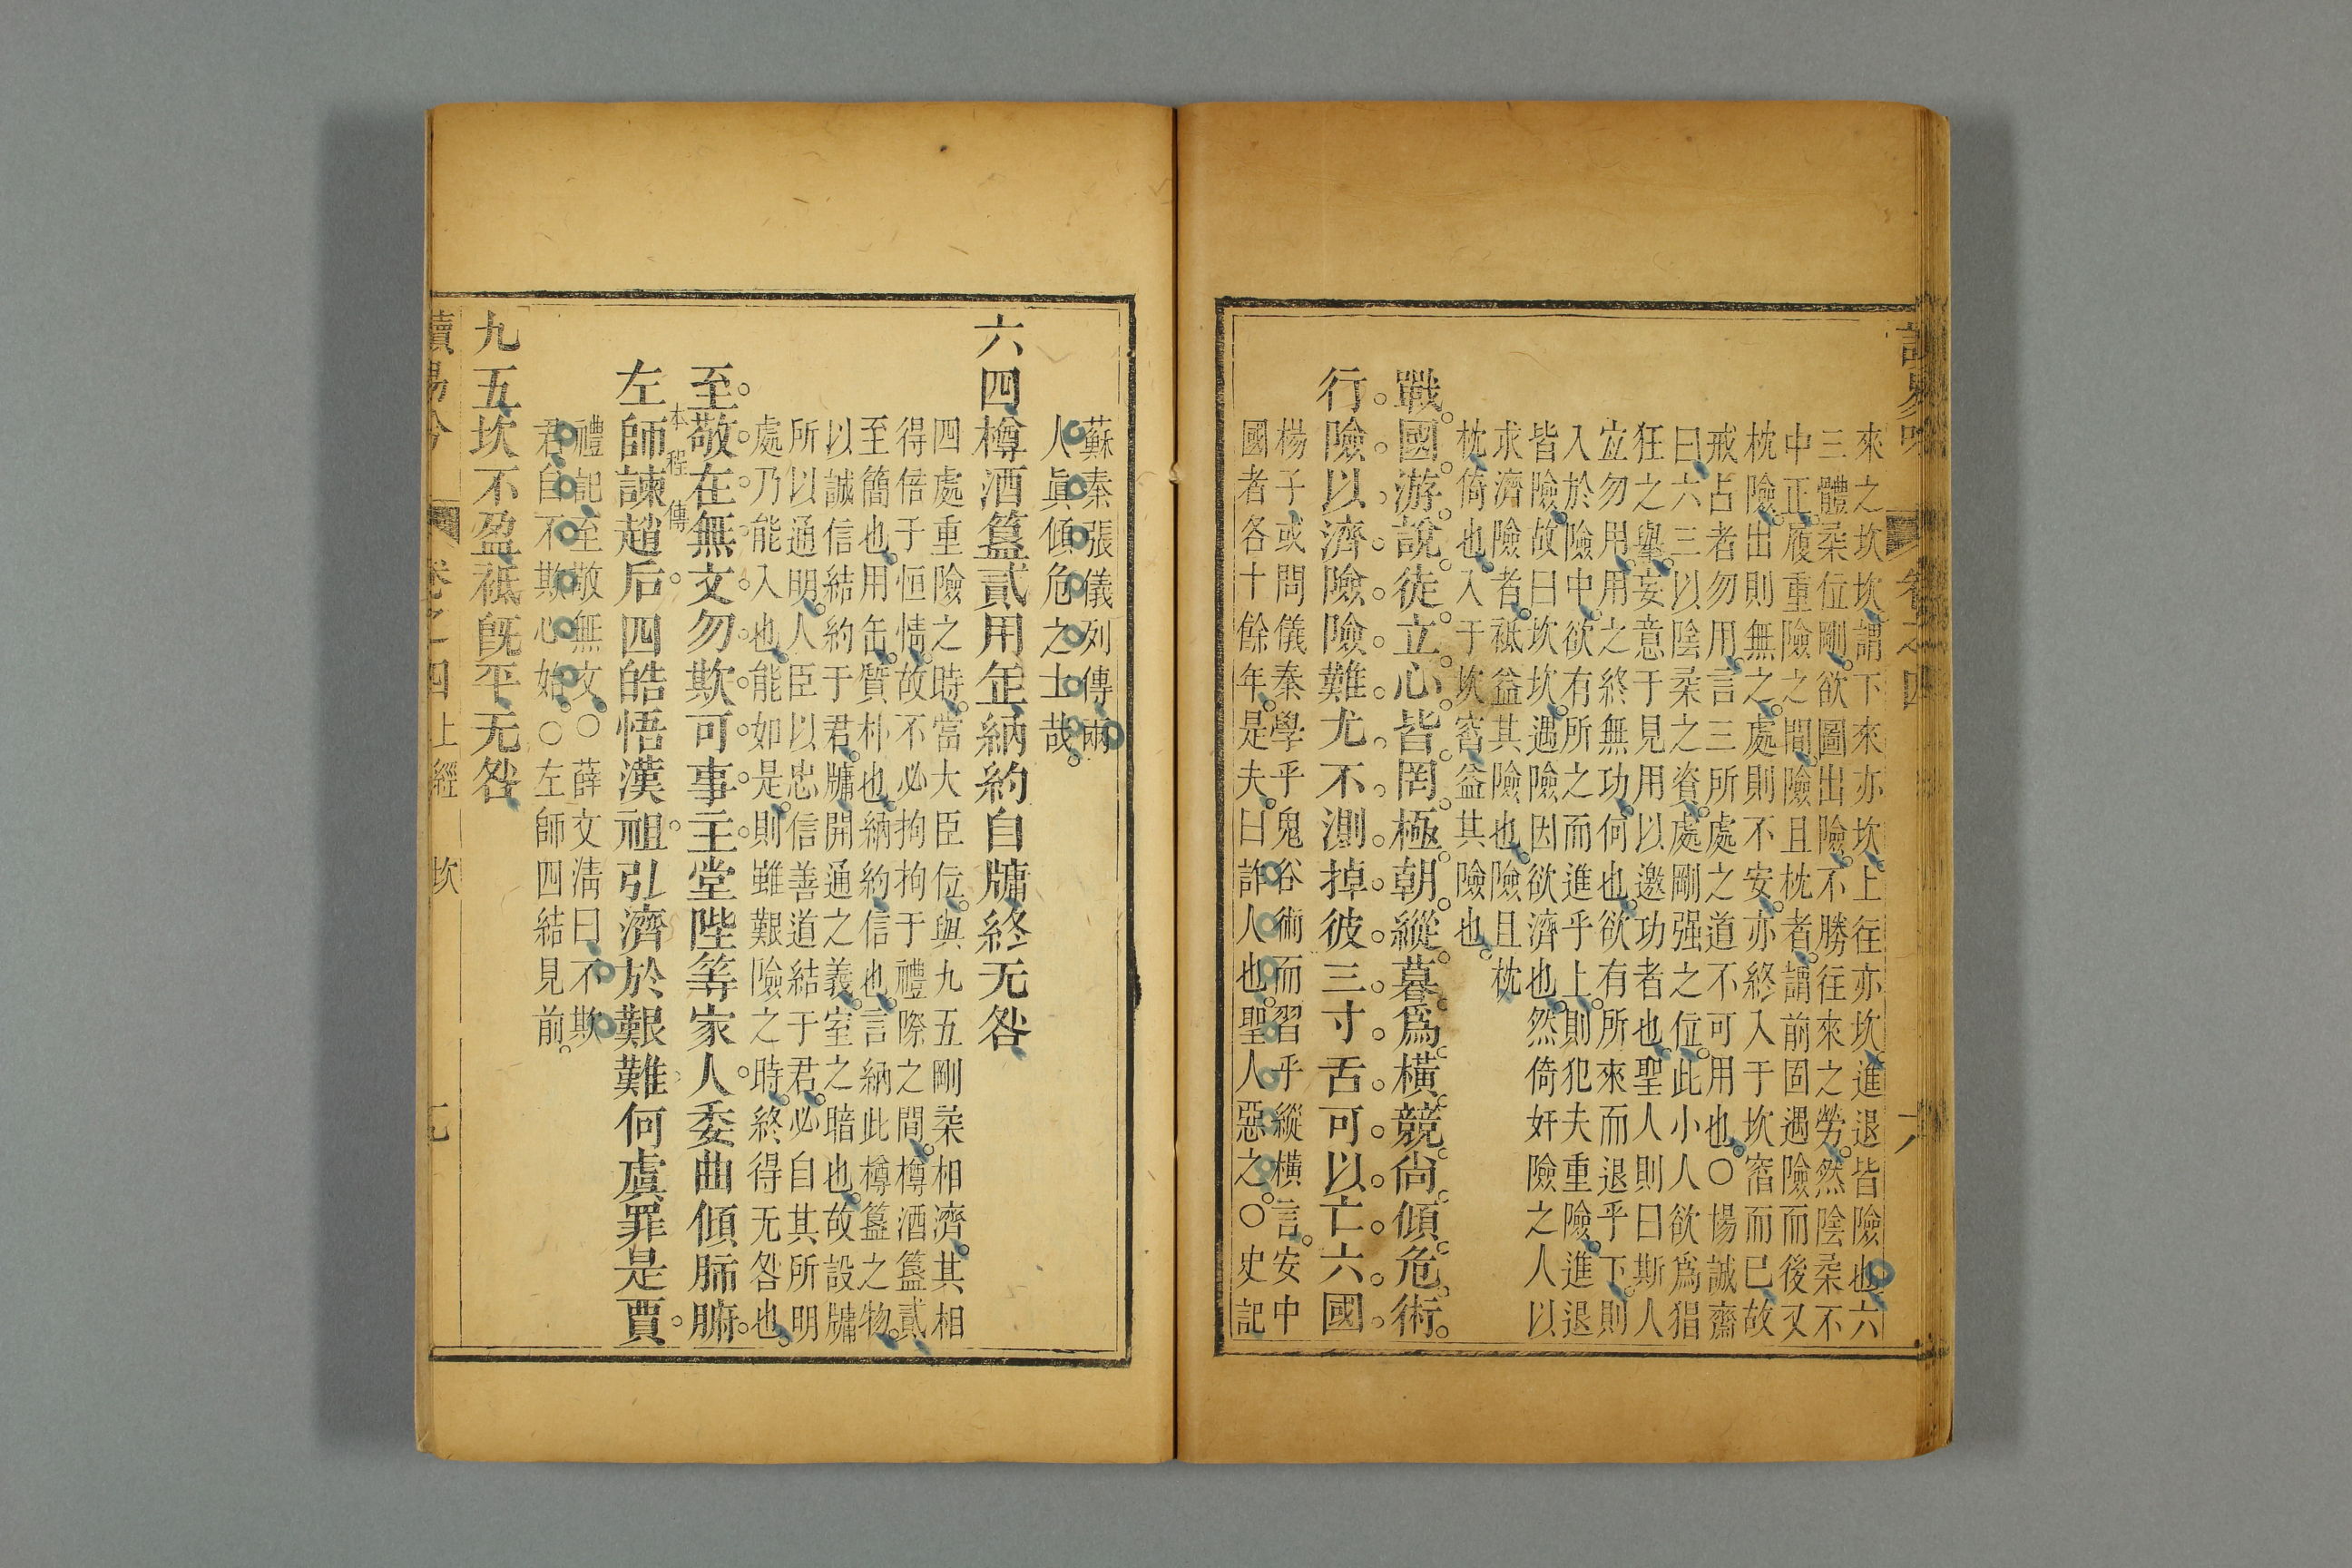 來之坎坎謂下來亦坎上往亦坎進退皆險也六
三體柔位剛欲圖出險不勝往來之勞然陰柔不
中正履重險之間險且枕者謂前固遇險而後又
枕險出則無之處則不安亦終入于坎窞而已故
戒占者勿用言三所處之道不可用也○楊誠齋
曰六三以陰柔之資處剛强之位此小人欲爲猖
狂之舉妄意于見用以邀功者也聖人則曰斯人
宜勿用用之終無功何也欲有所來而退乎下則
入於險中欲有所之而進乎上則犯夫重險進退
皆險故曰坎坎遇險因欲濟也然倚奸險之人以
求濟險者祗益其險也險且枕
枕倚也入于坎窞益其險也
戰國游說徒立心皆罔極朝縱暮爲橫競尙傾危術
行險以濟險險難尤不測掉彼三寸舌可以亡六國
楊子或問儀秦學乎鬼谷術而習乎縱橫言安中
國者各十餘年是夫曰詐人也聖人惡之○史記
卷之四
蘇秦張儀列傳兩
人眞傾危之士哉
六四樽酒簋貳用缶納約自牖終无咎
四處重險之時當大臣位與九五剛柔相濟其相
得倍于恒情故不必拘拘于禮際之間樽酒簋貳
至簡也用缶質朴也納約信也言納此樽簋之物
以誠信結約于君牖開通之義室之暗也故設牖
所以通明人臣以忠信善道結于君必自其所明
處乃能入也能如是則雖艱險之時終得无咎也
本程傳
至敬在無文勿欺可事主堂陛等家人委曲傾肺腑
左師諫趙后四皓悟漢祖弘濟於艱難何虞罪是賈
禮記至敬無文○薛文淸曰不欺
君自不欺心始○左師四結見前
九五坎不盈祗旣平无咎
讀易今
卷之四 上經 坎